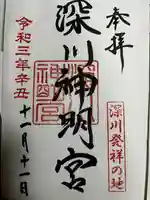 奉拝
深川発祥の地
深川神明宮
令和三年辛丑
十一月十一日